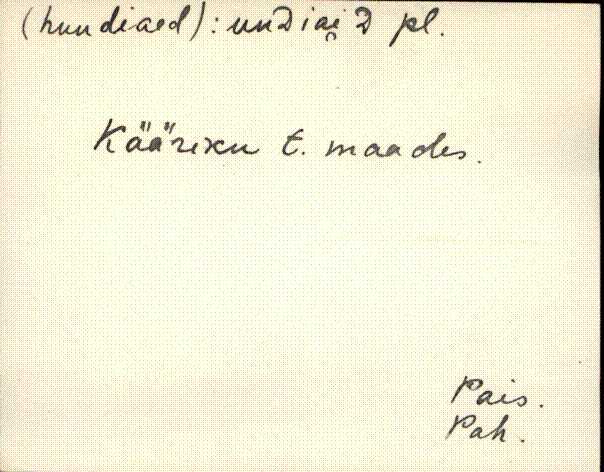 (hundiaed): unDiai̯D pl.
Kääriku t. maades.
Pais.
Pah.